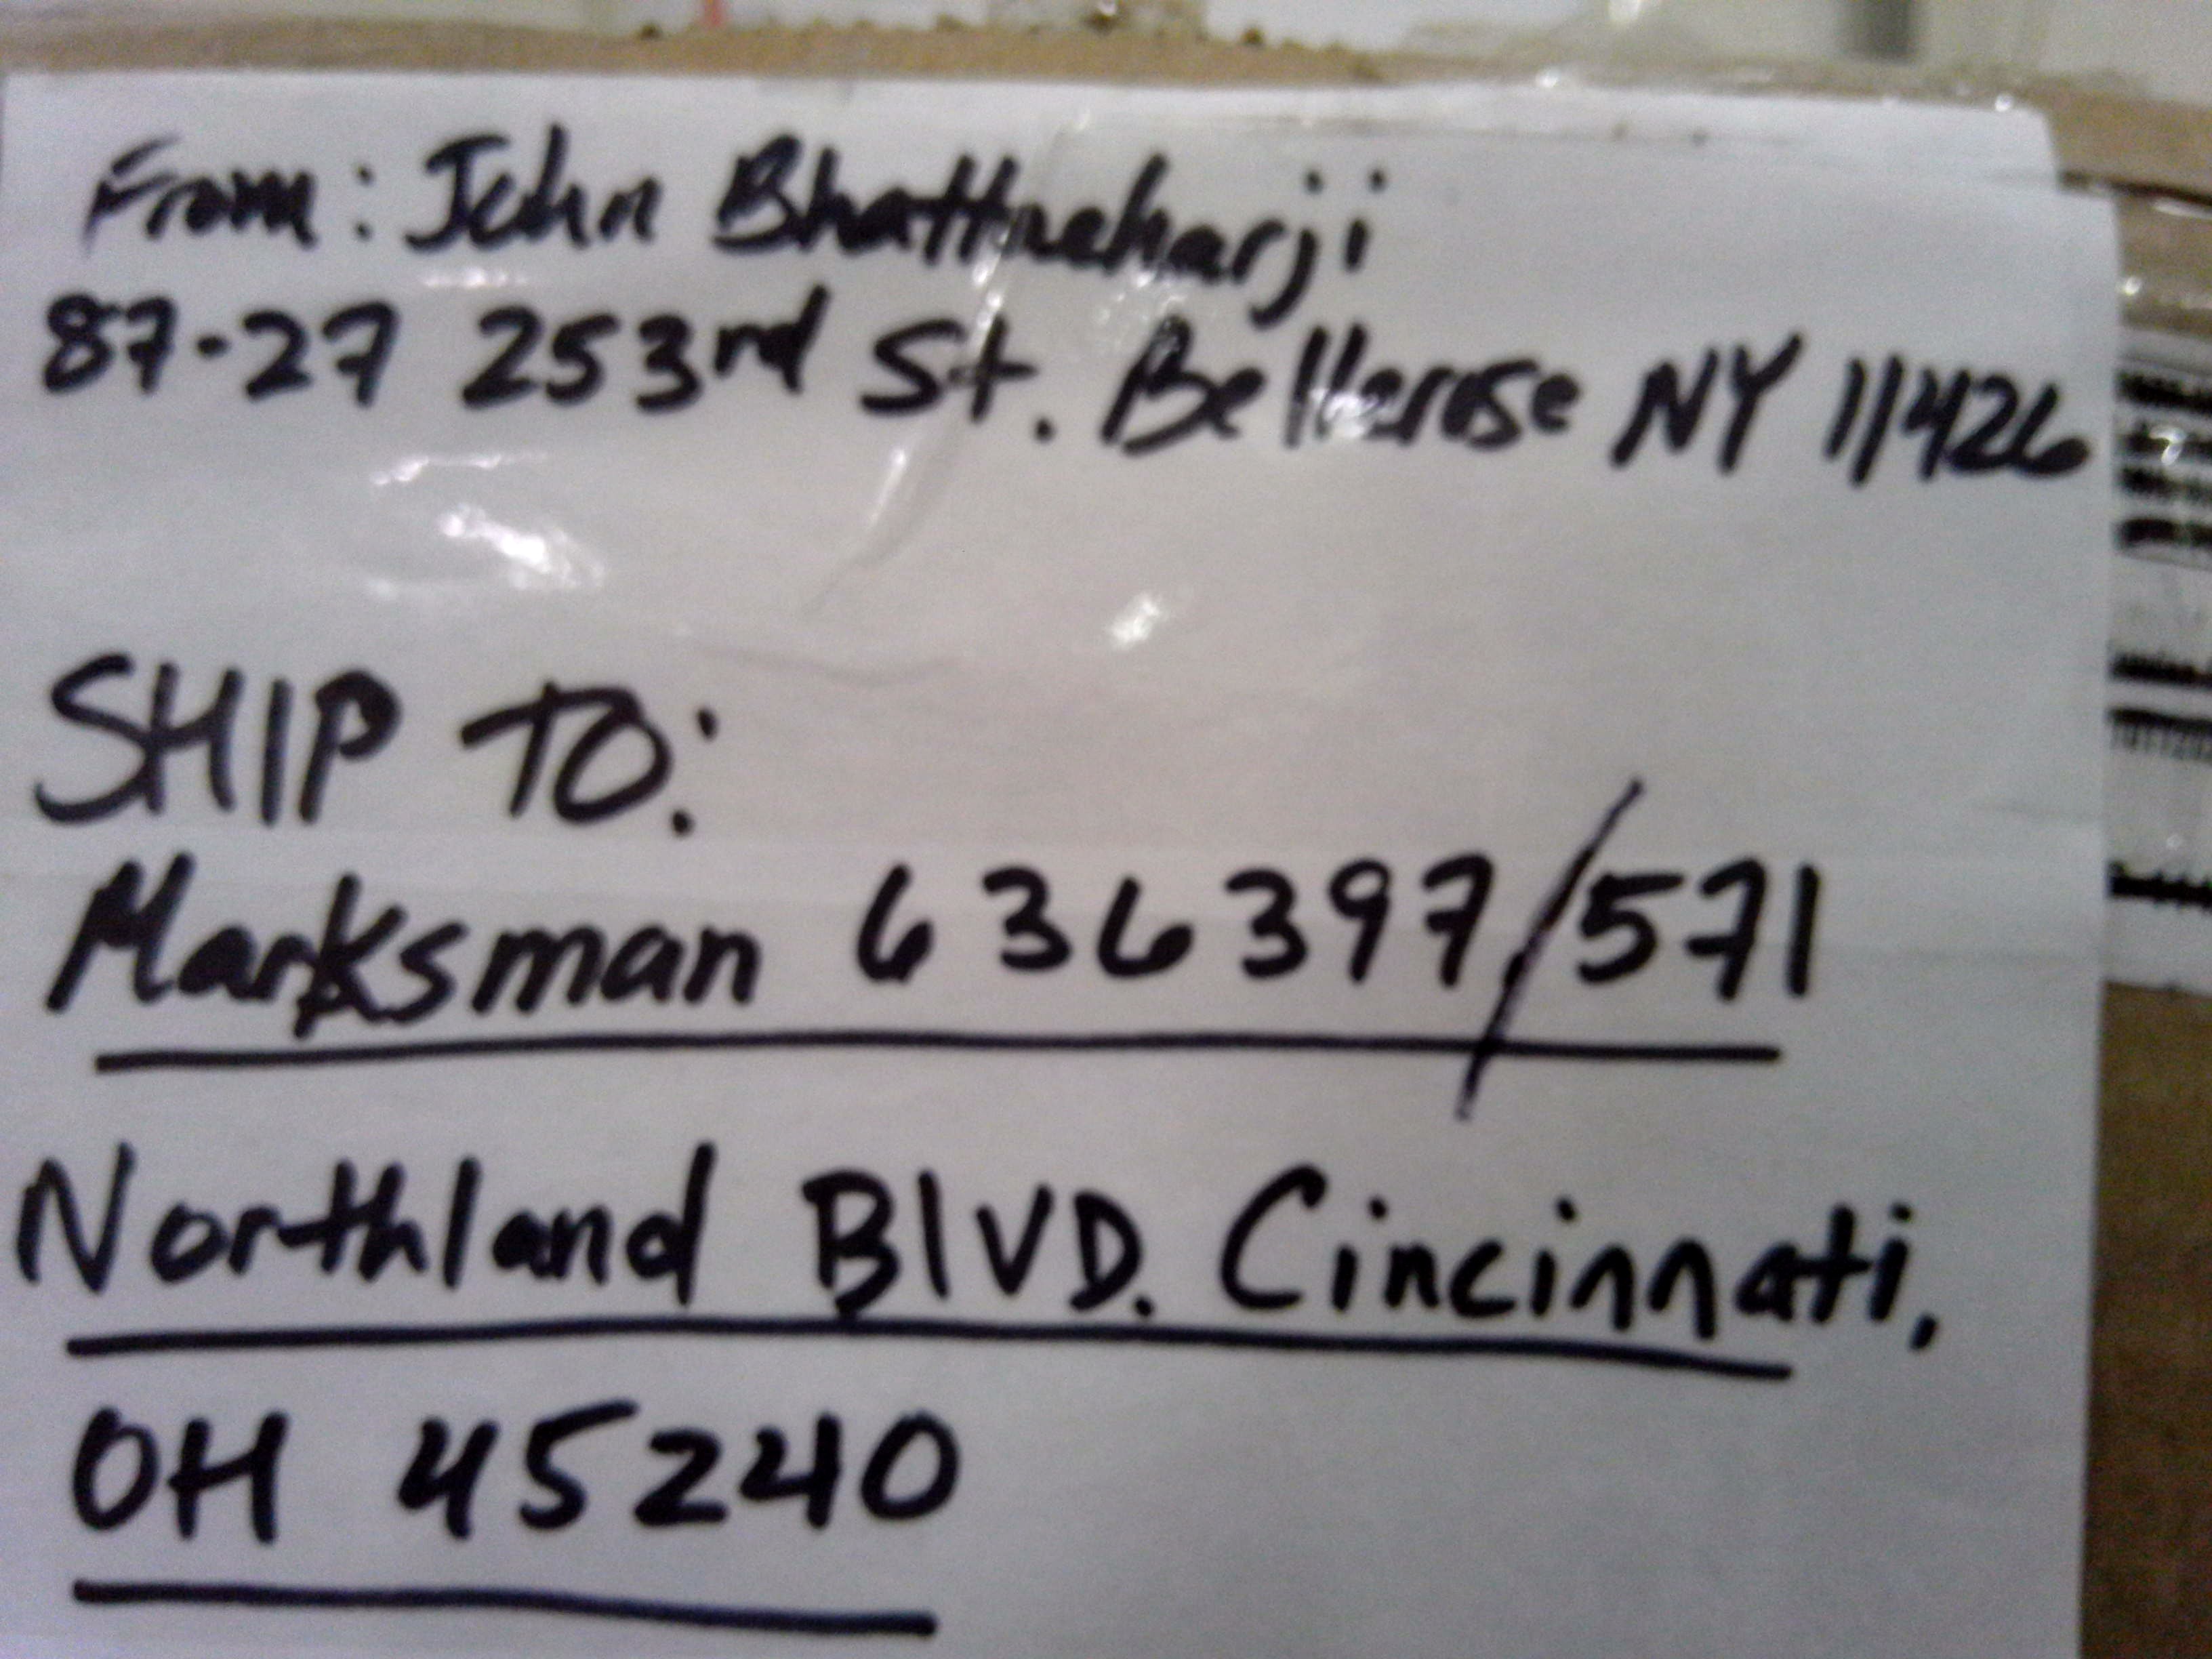 From: John Bhattacharji
87-27 253rd St. Bellerose NY 11426
SHIP TO:
Marksman 636397/571
Northland BLVD. Cincinnati,
OH 45240